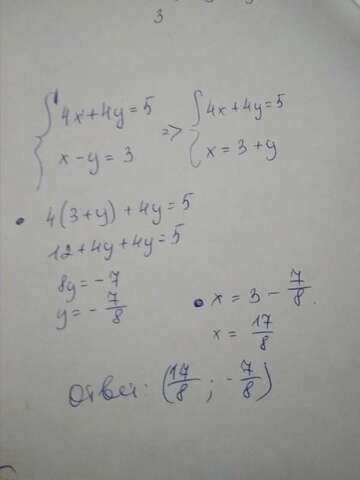 3
{ 4x+4y=5 => { 4x+4y=5
x-y=3 x=3+y
4(3+y)+4y=5
12+4y+4y=5
8y=-7
y=-7/8
x=3-7/8.
x=17/8
Ответ: (17/8; -7/8)